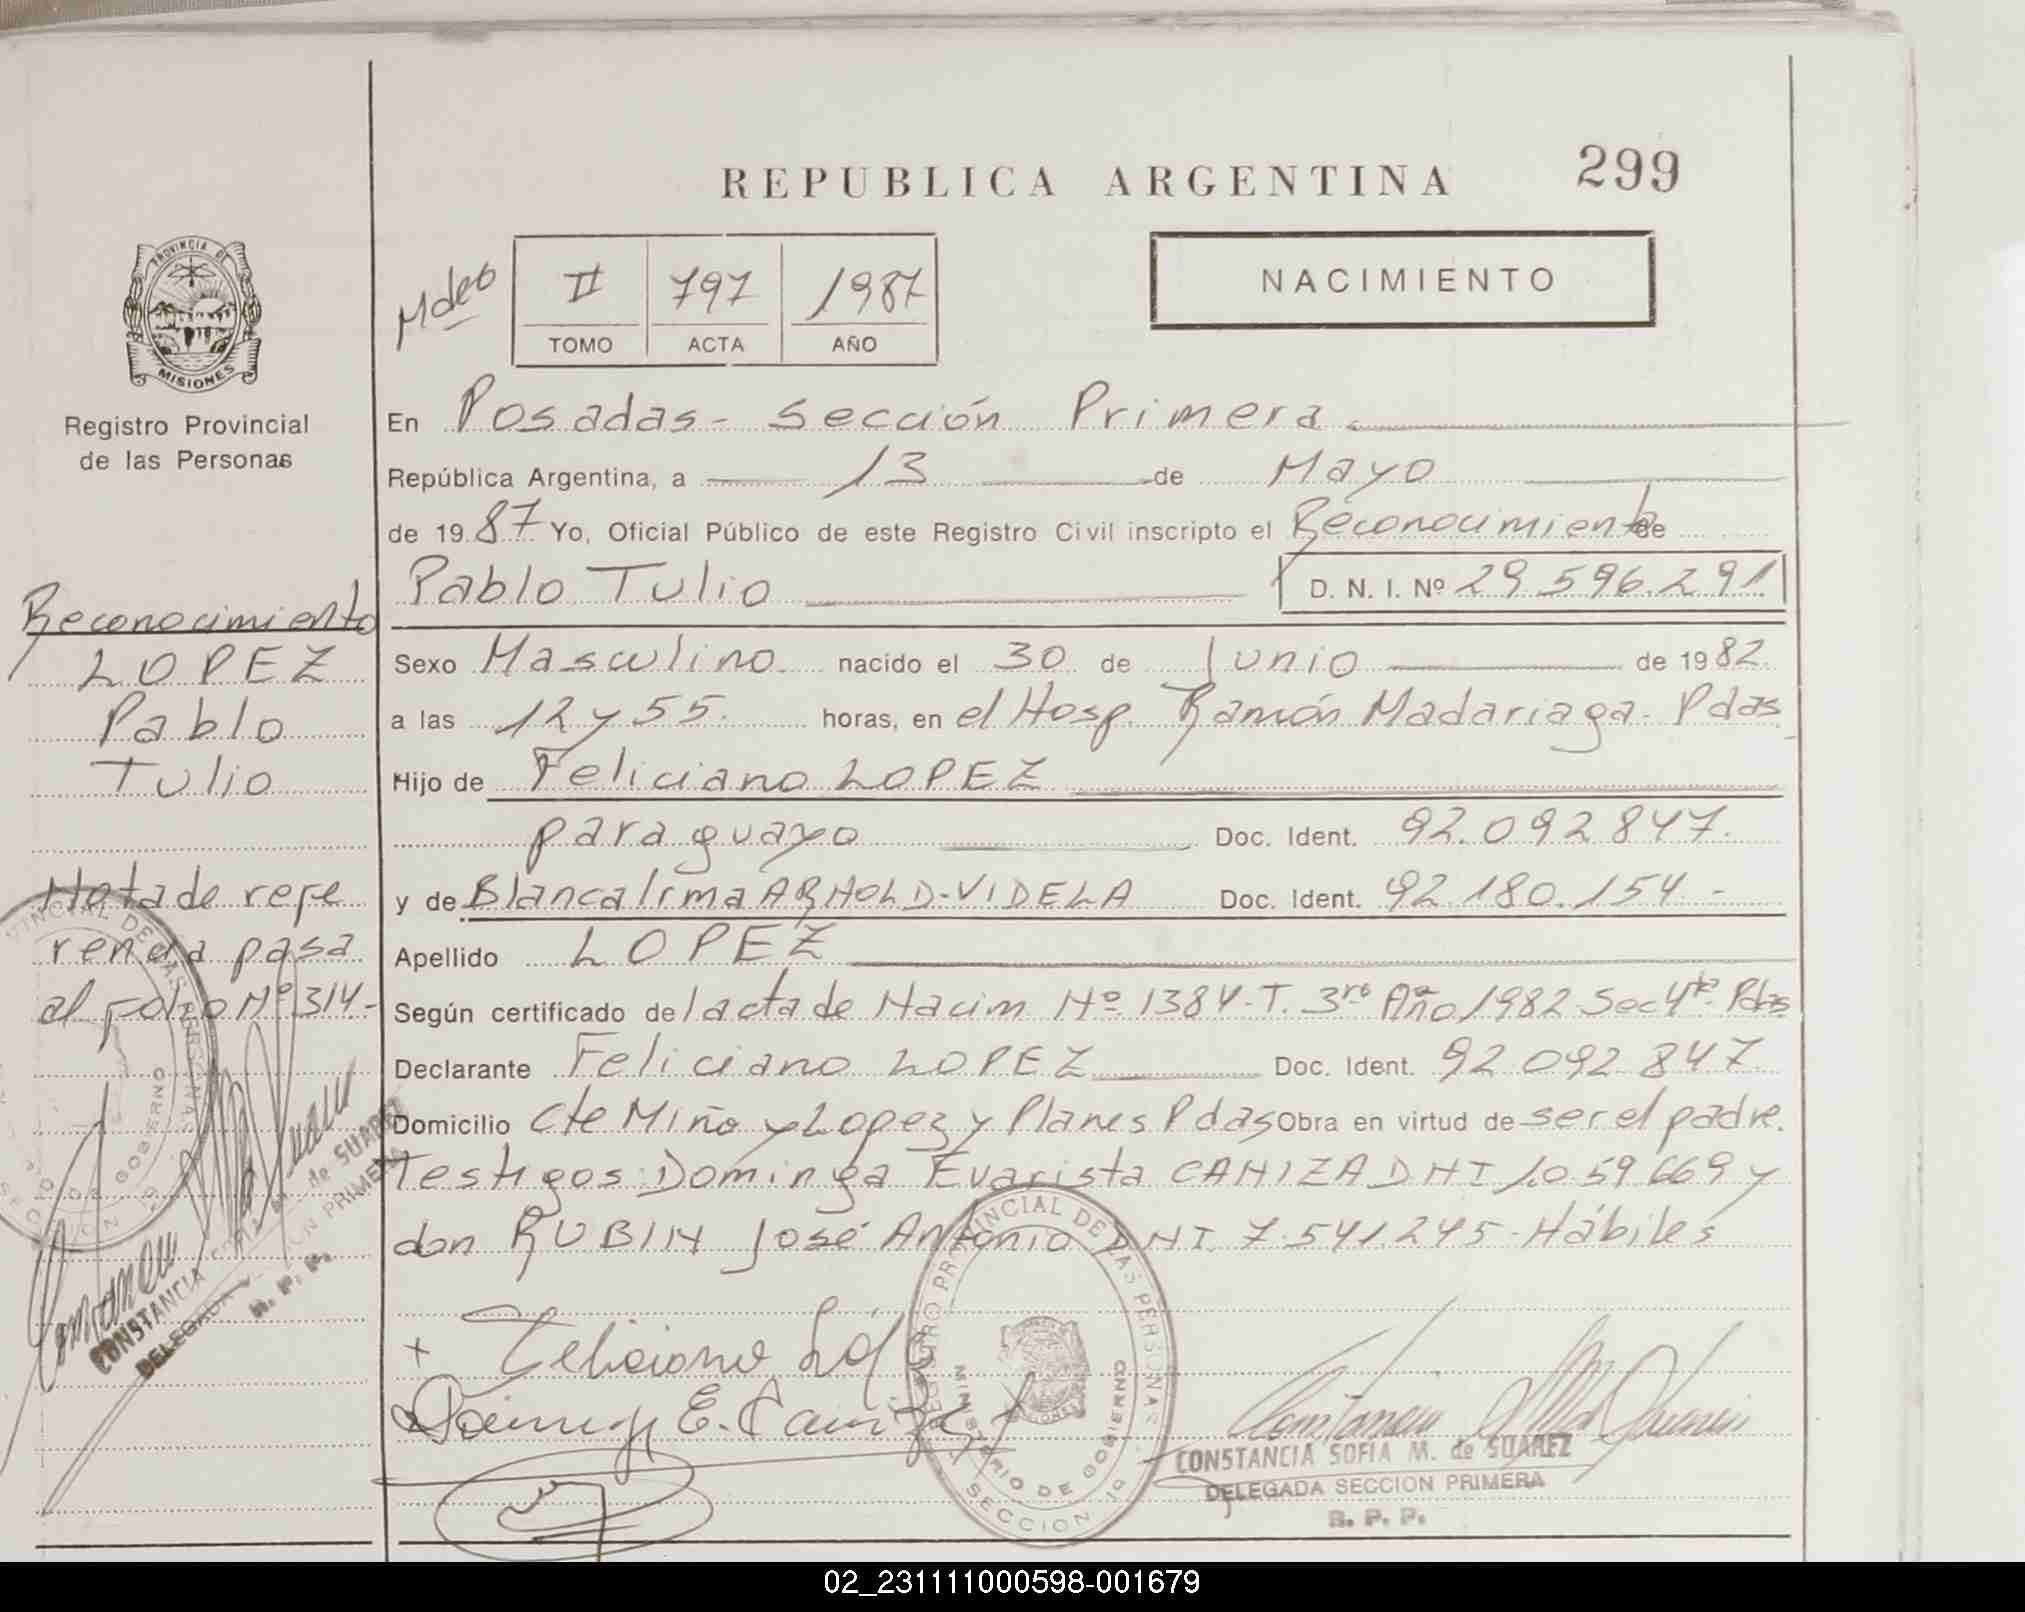 REPUBLICA ARGENTINA 299
PROVINCIA DE
MISIONES
Registro Provincial
de las Personas
II 797 1987
TOMO ACTA AÑO
NACIMIENTO
En Posadas - Sección Primera
República Argentina, a 13 de Mayo
de 1987 Yo, Oficial Público de este Registro Civil inscripto el Reconocimiento de
Pablo Tulio D. N. I. Nº 29.596.291
Sexo Masculino nacido el 30 de Junio de 1982
a las 12 y 55. horas, en el Hosp. Ramón Madariaga - Pdas
Hijo de Feliciano LOPEZ
paraguayo Doc. Ident. 92.092847.
y de Blanca Irma ARNOLD-VIDELA Doc. Ident. 92.180.154.-
Apellido LOPEZ
Según certificado de l acta de Nacim Nº 1384-T. 3ro Año 1982 Sec 4ta Pdas
Declarante Feliciano LOPEZ Doc. Ident. 92 092 847
Domicilio Cte Miño y Lopez y Planes Pdas Obra en virtud de ser el padre.
Testigos: Dominga Evarista CANIZA DNI 1.059669 y
don RUBIN José Antonio DNI 7.541.245 - Hábiles
Reconocimiento
LOPEZ
Pablo
Tulio
Nota de refe
rencia pasa
al folio Nº 314.-
CONSTANCIA
DELEGADA
R. P. P.
REGISTRO PROVINCIAL DE LAS PERSONAS
MINISTERIO DE GOBIERNO
SECCION 1a
CONSTANCIA SOFIA M. de SUAREZ
DELEGADA SECCION PRIMERA
R. P. P.
02_231111000598-001679